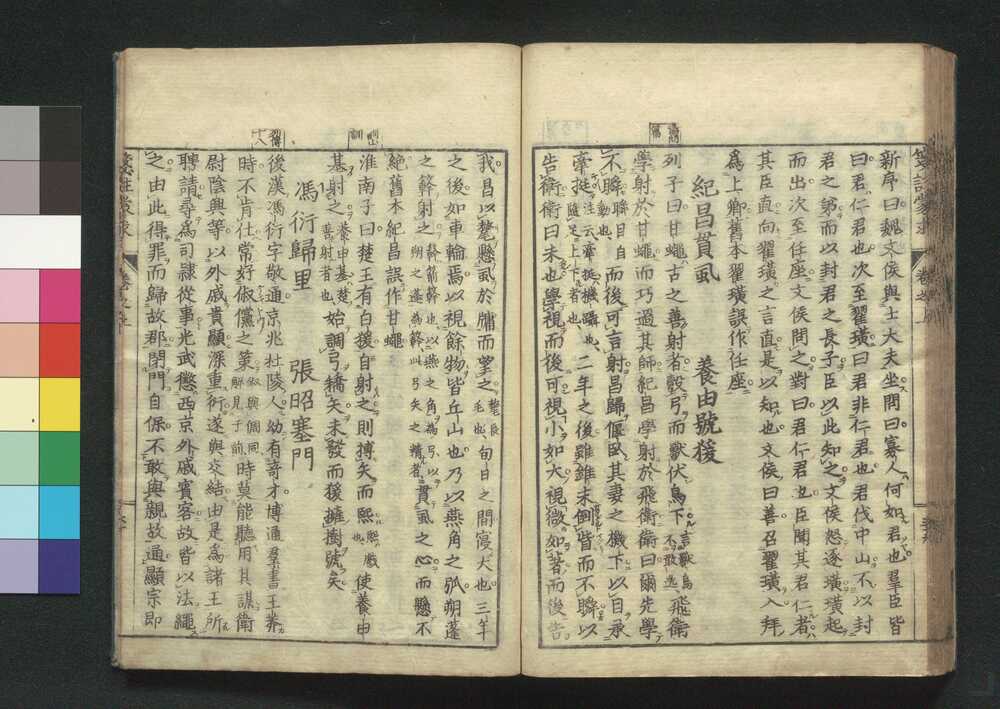 新序曰魏文侯與士大夫坐問曰寡人何如君也羣臣皆
曰君仁君也次至翟璜曰君非仁君也君伐中山不以封
君之弟而以封君之長子臣以此知之文侯怒逐璜璜起
而出次至任座文侯問之對曰君仁君也臣聞其君仁者
其臣直向翟璜之言直是以知也文侯曰善召翟璜入拜
爲上卿舊本翟璜誤作任座
紀昌貫虱 養由號猨
列子曰甘蠅古之善射者彀弓而獸伏鳥下言獸鳥不敢逸飛衛
學射於甘蠅而巧過其師紀昌學射於飛衛衛曰爾先學
不瞬瞬目自動也而後可言射昌歸偃臥其妻之機下以目承
牽挺注云牽挺機躡也隨足上下者也二年之後雖錐末倒眥而不瞬以
告衛衛曰未也學視而後可視小如大視微如著而後告
我昌以氂懸虱於牖而望之氂長毛也旬日之間寖大也三年
之後如車輪焉以視餘物皆丘山也乃以燕角之弧朔蓬
之簳射之
絶舊本紀昌誤作甘蠅
淮南子曰楚王有白猨自射之則搏矢而熙熙戲也使養由
基射之養由基楚善射者也始調弓矯矢未發而猨擁樹號矣
馮衍歸里 張昭塞門
後漢馮衍字敬通京兆杜陵人幼有奇才博通羣書王莽
時不肯仕常好俶儻之策時莫能聽用其謀衛
尉陰興等以外戚貴顯深重衍遂與交結由是爲諸王所
聘請尋爲司隷從事光武懲西京外戚賓客故皆以法繩
之由此得罪而歸故郡閉門自保不敢與親故通顯宗即